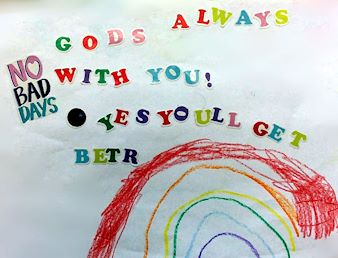 GODS ALWAYS
NO
BAD
DAYS
WITH YOU!
YES YOULL GET
BETR